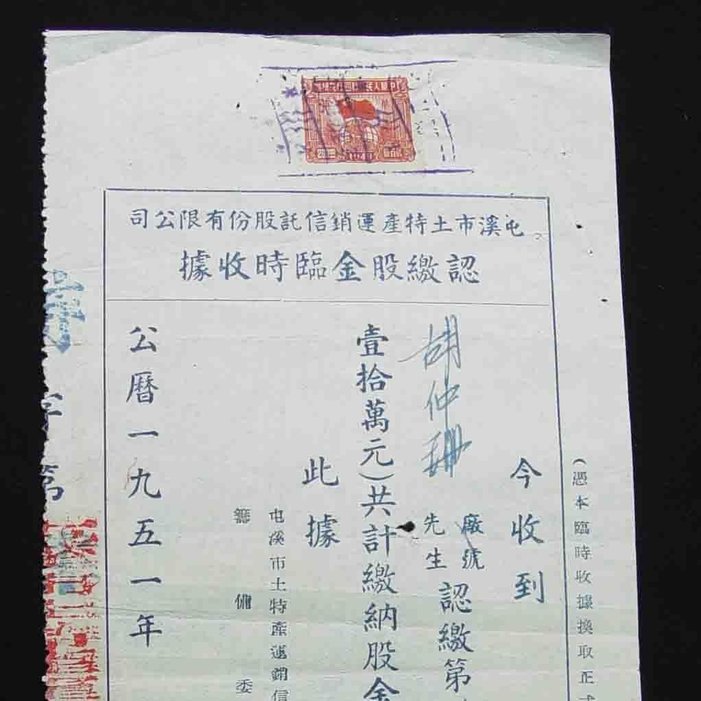 屯溪市土特產運銷信託股份有限公司
認繳股金臨時收據
(憑本臨時收據換取正式
今收到
胡仲珊
廠號
先生
認繳第
壹拾萬元)共計繳納股金
此據
屯溪市土特產運銷信
籌備委
公曆一九五一年
字第